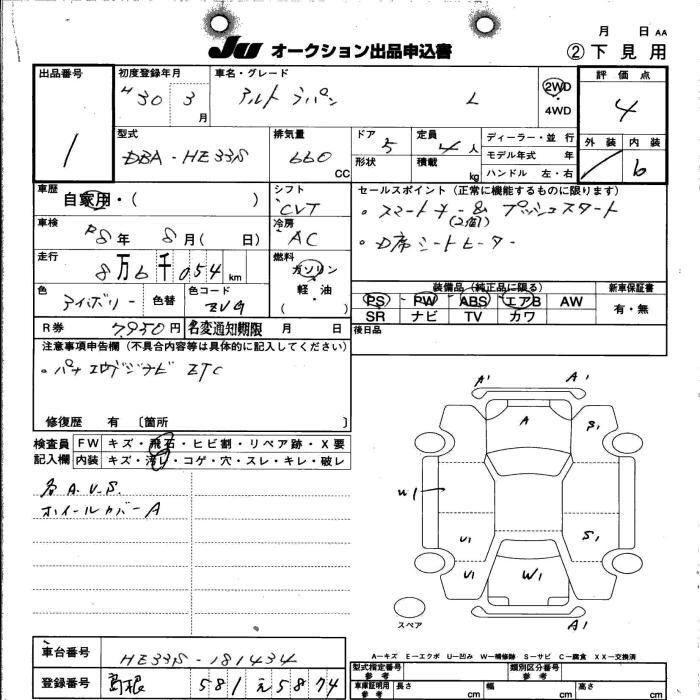 月 日 AA
JU オークション出品申込書 ②下見用
出品番号 初度登録年月 車名・グレード 評価点
1 H30 3月 アルト ラパン L 2WD・4WD 4
外装 内装
型式 排気量 ドア 定員 ディーラー・並行
DBA-HE33S 660 CC 5 4人 モデル年式 年
形状 積載 kg ハンドル 左・右 b
車歴 自家用・( ) シフト CVT
セールスポイント(正常に機能するものに限ります)
・スマートキー& プッシュスタート
(2個)
・D席シートヒーター
車検 R8年 8月( 日) 冷房 AC
走行 8万6千054km 燃料 ガソリン・軽油
色 アイボリー 色替 色コード ZVG
装備品(純正品に限る) 新車保証書
PS・PW ABS エアB AW 有・無
SR ナビ TV カワ
R券 7950円 名変通知期限 月 日 後日品
注意事項申告欄(不具合内容等は具体的に記入してください)
・パナ ナビ ETC
修復歴 有 〔箇所 〕
検査員 FW キズ・飛石・ヒビ割・リペア跡・X要
記入欄 内装 キズ・汚レ・コゲ・穴・スレ・キレ・破レ
各A.U.S.
ホイールカバーA
A1 A1
A S1
U1
U1 S1
U1 W1
スペア A1
A−キズ E−エクボ U−凹み W−補修跡 S−サビ C−腐食 XX−交換済
車台番号 HE33S-181434
型式指定番号 参考 類別区分番号 参考
登録番号 島根 581 え 5874
車庫証明用 参考 長さ cm 幅 cm 高さ cm